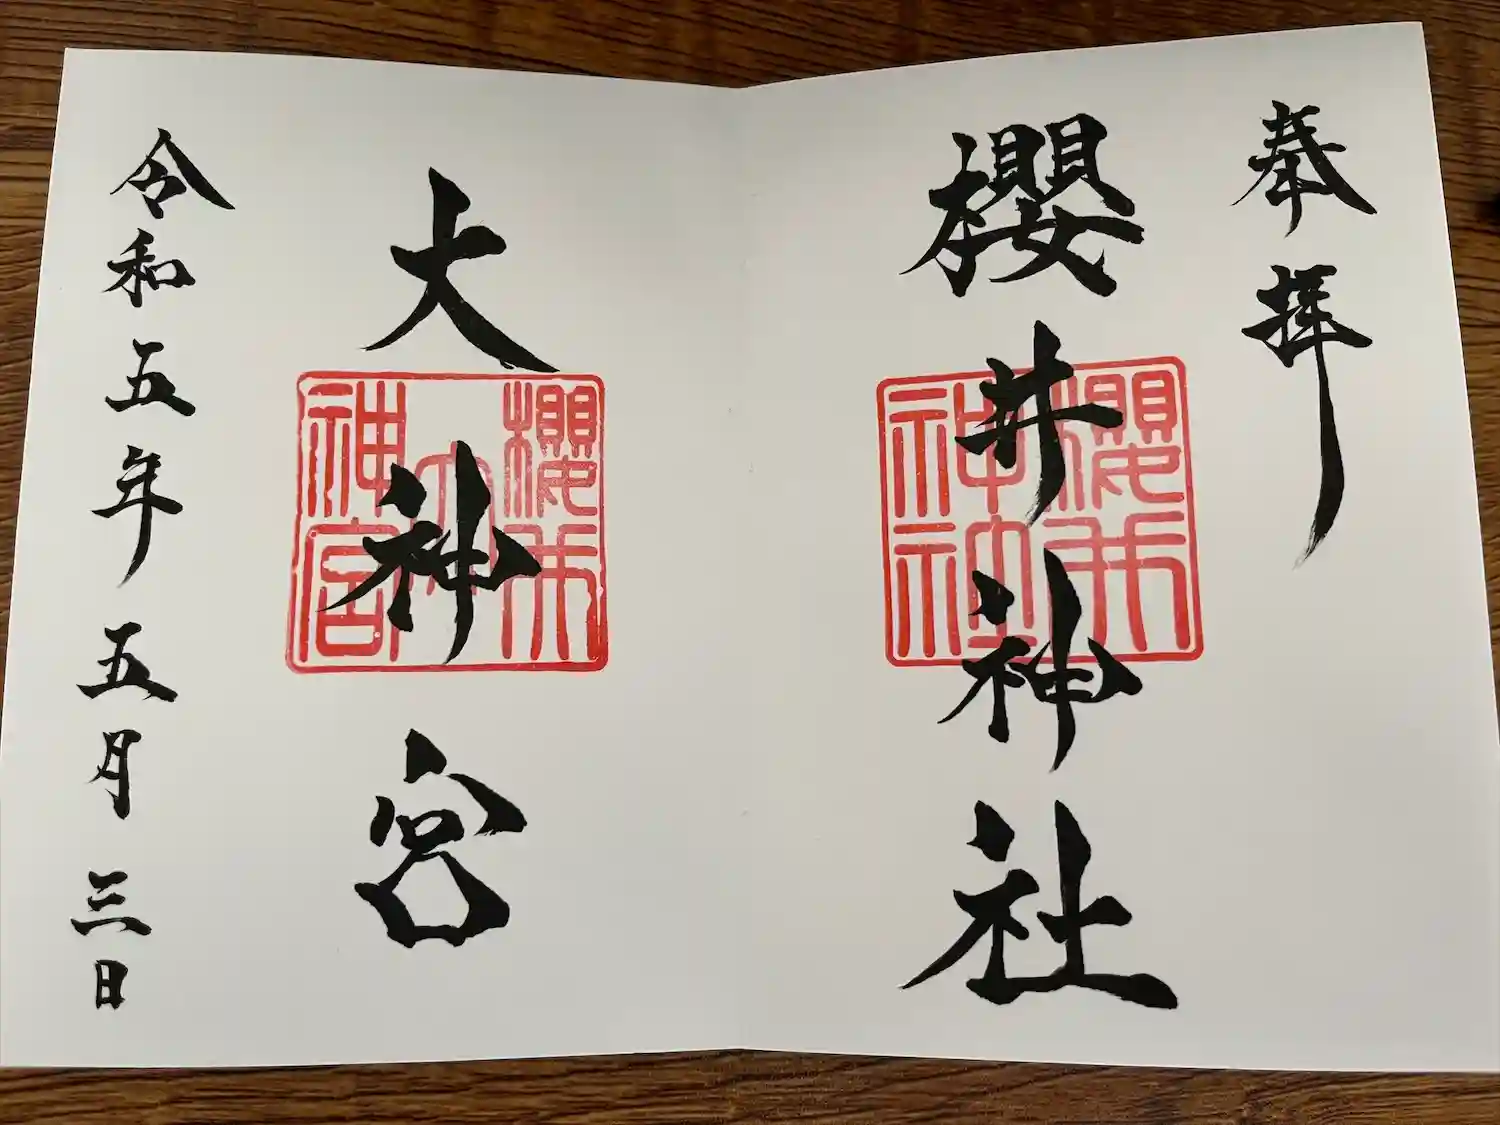 奉拝
櫻井神社
大神宮
令和五年五月三日
櫻井
神社
櫻井
大神
神宮